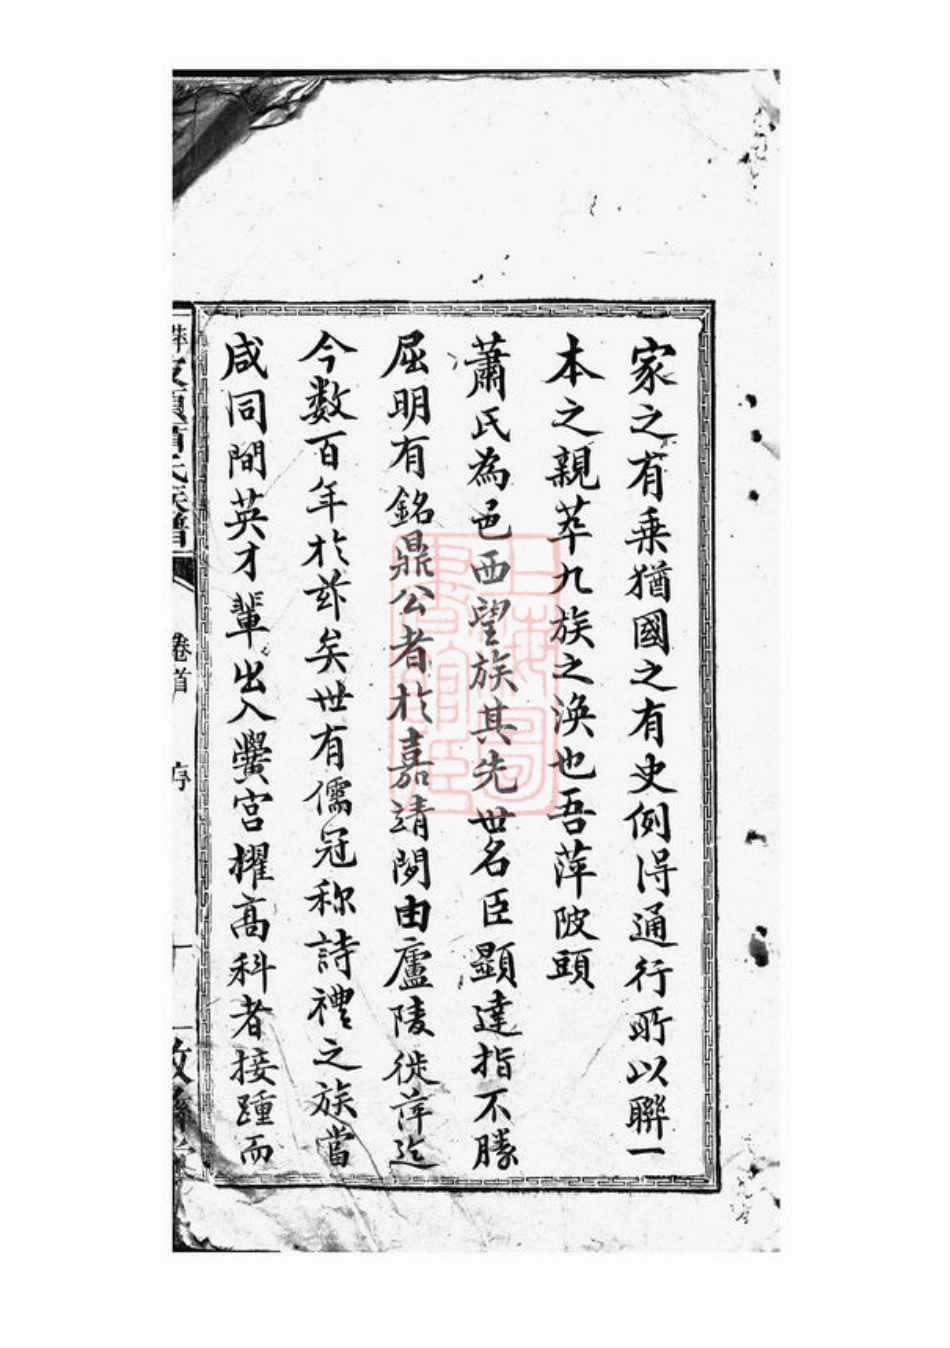 家之有乗猶國之有史例得通行所以聯一
本之親萃九族之渙也吾萍陂頭
蕭氏為邑西望族其先世名臣顯達指不勝
屈明有銘鼎公者於嘉靖間由廬陵徙萍迄
今数百年於玆矣世有儒冠称詩禮之族當
咸同間英才輩出入黌宮擢高科者接踵而
蕭氏族譜
卷首
序
上海圖書館藏